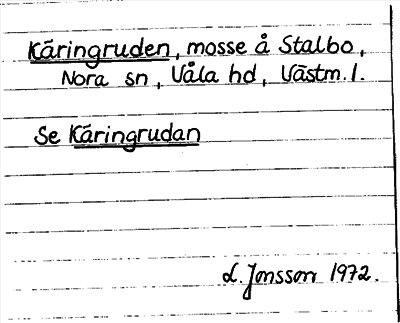 Käringruden, mosse å Stalbo,
Nora sn, Våla hd, Västm. l.
Se Käringrudan
L. Jonsson 1972.